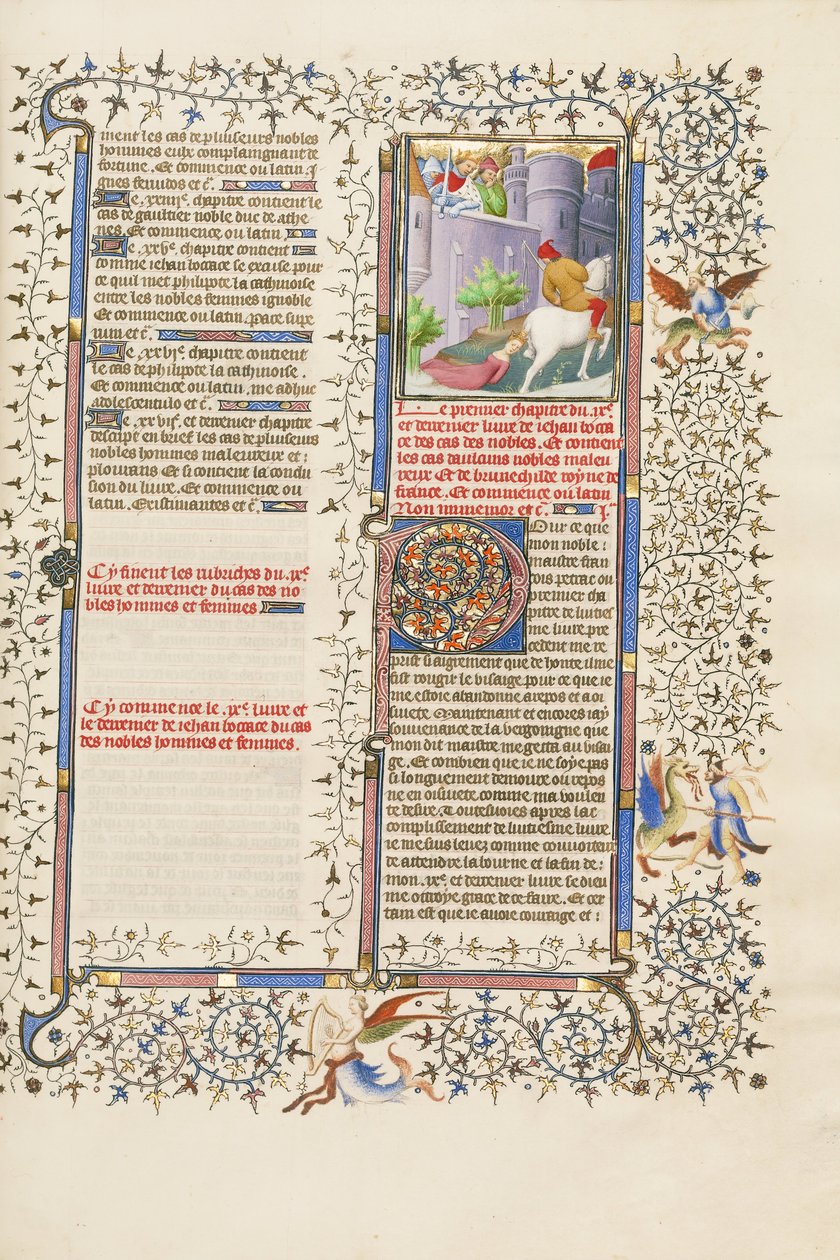 ment les cas de pluseurs nobles
hommes eulx complaignant de
fortune. Et commence ou latin. J
gnes feruidos et c̄.
Le .xxiiii.e chapitre contient le
cas de gaultier noble duc de athe
nes. Et commence ou latin.
Le .xxv.e chapitre contient
comme iehan bocace se excuse pour
ce quil met philipote la cathinoise
entre les nobles femmes ignoble
Et commence ou latin. pace supe
rum et c̄.
Le .xxvi.e chapitre contient
le cas de philipote la cathinoise.
Et commence ou latin. me adhuc
adolescentulo et c̄.
Le .xxvii.e et derrenier chapitre
descript en brief les cas de pluseurs
nobles hommes maleureux et :
plourans Et si contient la conclu
sion du liure. Et commence ou
latin. Existimantes et c̄.
Cy finent les rubriches du .ix.e
liure et derrenier du cas des no
bles hommes et femmes
Cy commence le .ix.e liure et
le derrenier de iehan boccace du cas
des nobles hommes et femmes.
Le premier chapitre du .ix.e
et derrenier liure de iehan bocca
ce des cas des nobles. Et contient
les cas daulcuns nobles maleu
reux Et de brunechilde royne de
france. Et commence ou latin
Non immemor et c̄. J.
Pour ce que
mon noble :
maistre fran
cois petrac ou
premier cha
pitre de luities
me liure pre
cedent me re
prist si aigrement que de honte il me
fist rougir le visaige pour ce que ie
me estoie abandonne a repos et a oi
siuete Maintenant et encores iay
souuenance de la vergoingne que
mon dit maistre me gecta au visai
ge. Et combien que ie ne soye pas
si longuement demoure ou repos
ne en oisiuete comme ma voulen
te desire. Toutesuoies apres lac
complissement de luitiesme liure
ie me suis leuez comme conuoiteux
de attendre la bourne et la fin de :
mon .ix.e et derrenier liure se dieu
me ottroye grace de ce faire. Et cer
tain est que ie auoie couraige et :